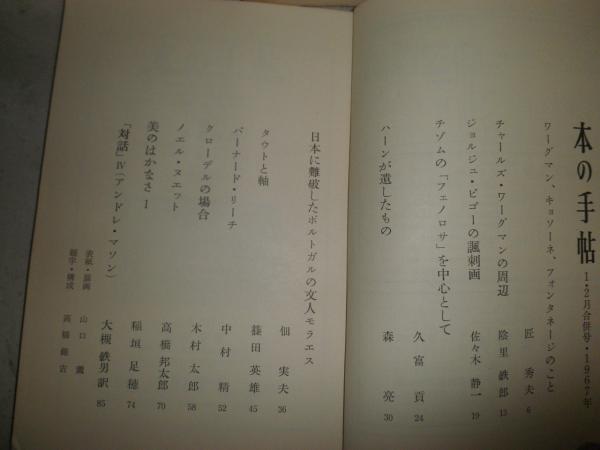 本の手帖 1・2月合併号・1967年
ワーグマン、キョソーネ、フォンタネージのこと 匠 秀夫 6
チャールズ・ワーグマンの周辺 陰里 鉄郎 13
ジョルジュ・ビゴーの諷刺画 佐々木 静一 19
チゾムの「フェノロサ」を中心として 久富 貢 24
ハーンが遺したもの 森 亮 30
日本に難破したポルトガルの文人モラエス 佃 実夫 36
タウトと軸 篠田 英雄 45
バーナード・リーチ 中村 精 52
クローデルの場合 木村 太郎 58
ノエル・ヌエット 高橋 邦太郎 70
美のはかなさ 1 稲垣 足穂 74
「対話」Ⅳ(アンドレ・マソン) 大槻 鉄男訳 85
表紙・扉画 山口 薫
題字・構成 高橋 錦吉